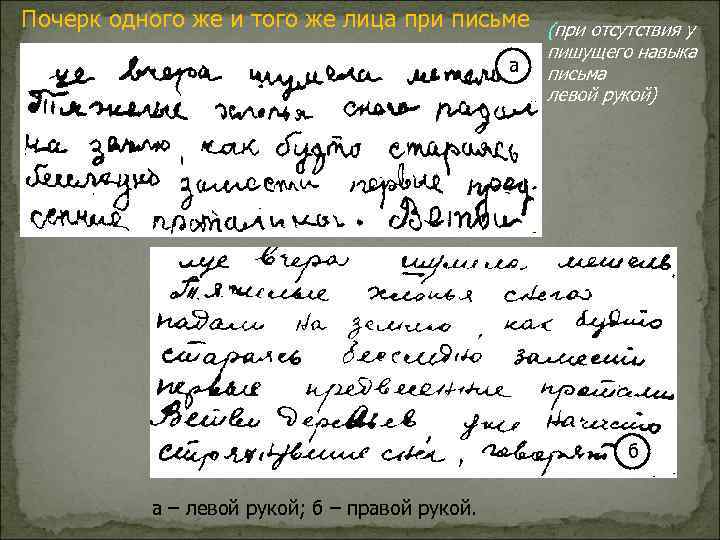 Почерк одного же и того же лица при письме
(при отсутствия у
пишущего навыка
письма
левой рукой)
а
це вчера шумела метель
Тяжелые хлопья снега падал
на землю, как будто стараясь
бесследно замести первые пред-
сенние проталинки. Ветви
луе вчера шумела метель.
Тяжелые хлопья снега
падали на землю, как будто
стараясь бесследно замести
первые предвесенние протали
Ветви деревьев, уже начисто
стряхнувшие снег, говорят
б
а – левой рукой; б – правой рукой.